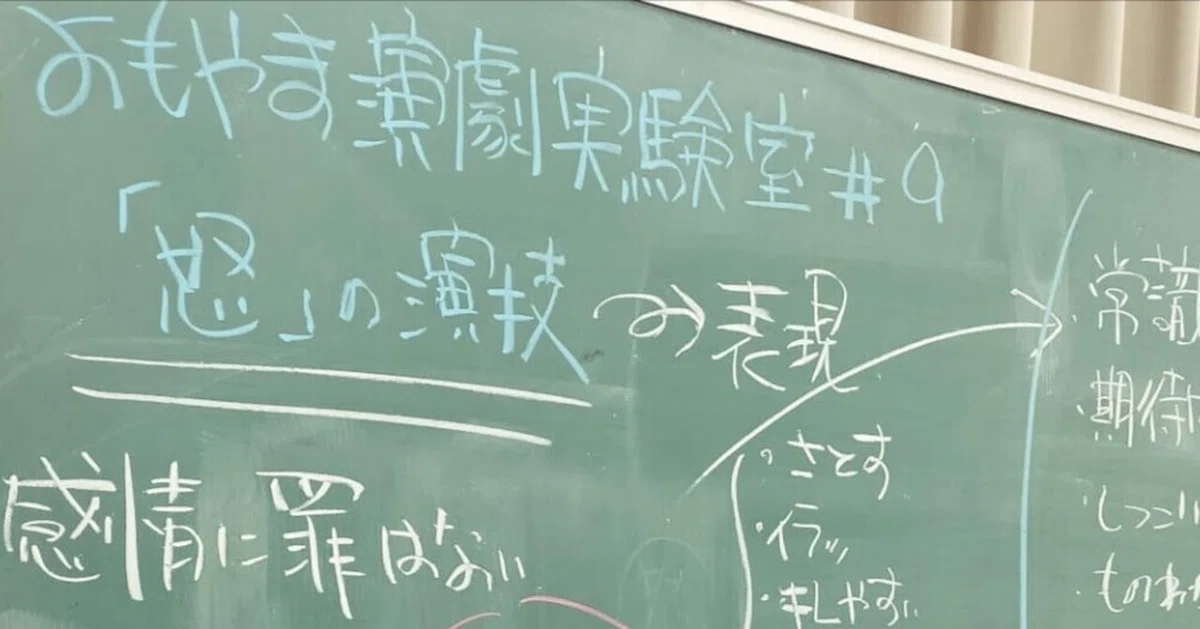 よもやま演劇実験室#9
「怒」の演技→表現
感情に罪はない
・さとす
・イラッ
・キレやすい
・期待
・しつこい